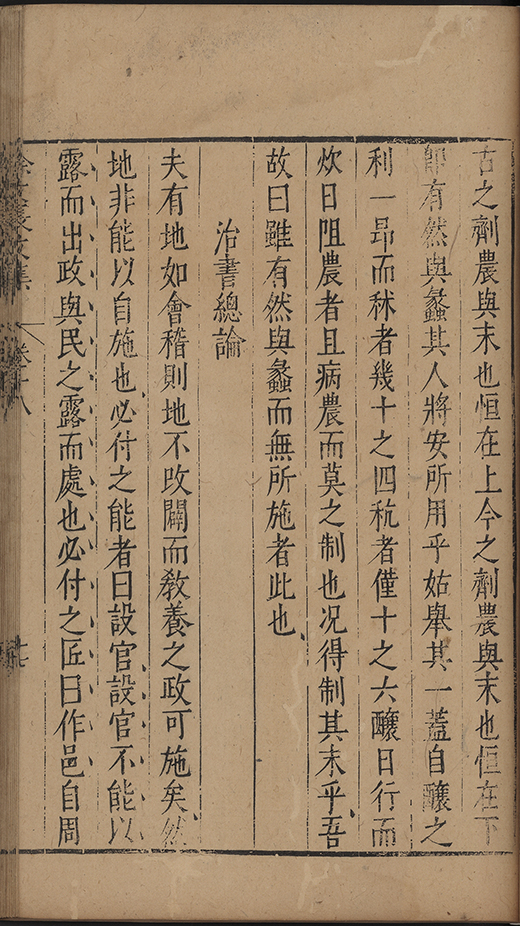 古之劑農與末也恒在上今之劑農與末也恒在下
即有然與蠡其人將安所用乎姑舉其一蓋自釀之
利一昂而秫者幾十之四秔者僅十之六釀日行而
炊日阻農者且病農而莫之制也况得制其末乎吾
故曰雖有然與蠡而無所施者此也
治書總論
夫有地如會稽則地不攺闢而敎養之政可施矣然
地非能以自施也必付之能者曰設官設官不能以
露而出政與民之露而處也必付之匠曰作邑自周
徐文長文集 卷十八